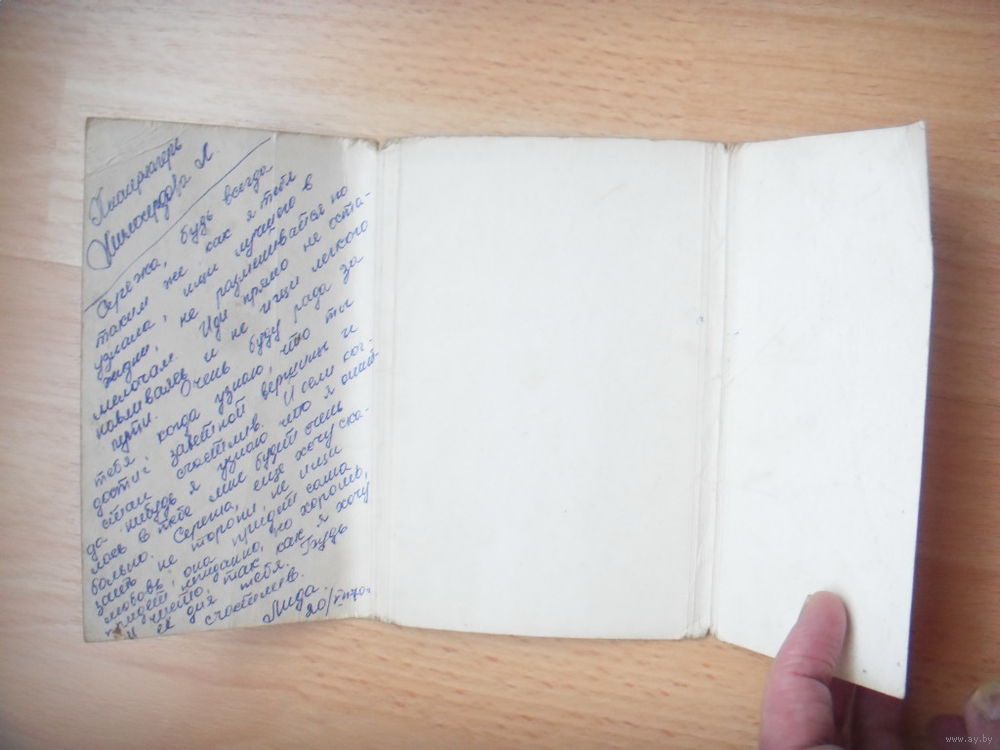 Пионерлагерь
Милосердова Л.
Сережа, будь всегда
таким же как я тебя
узнала, ищи лучшего в
жизни, не разменивайся по
мелочам. Иди прямо не оста-
навливаясь и не ищи легкого
пути. Очень буду рада за
тебя, когда узнаю, что ты
достиг заветной вершины и
стал счастлив. И если ког-
да нибудь я узнаю что я ошиб-
лась в тебе мне будет очень
больно. Сережа, еще хочу ска-
зать не торопи, не ищи
любовь, она придет сама
придет нежданно, но хорошо,
и чисто, так как я хочу
ее для тебя. Будь
счастлив.
Лида.
www.ay.by